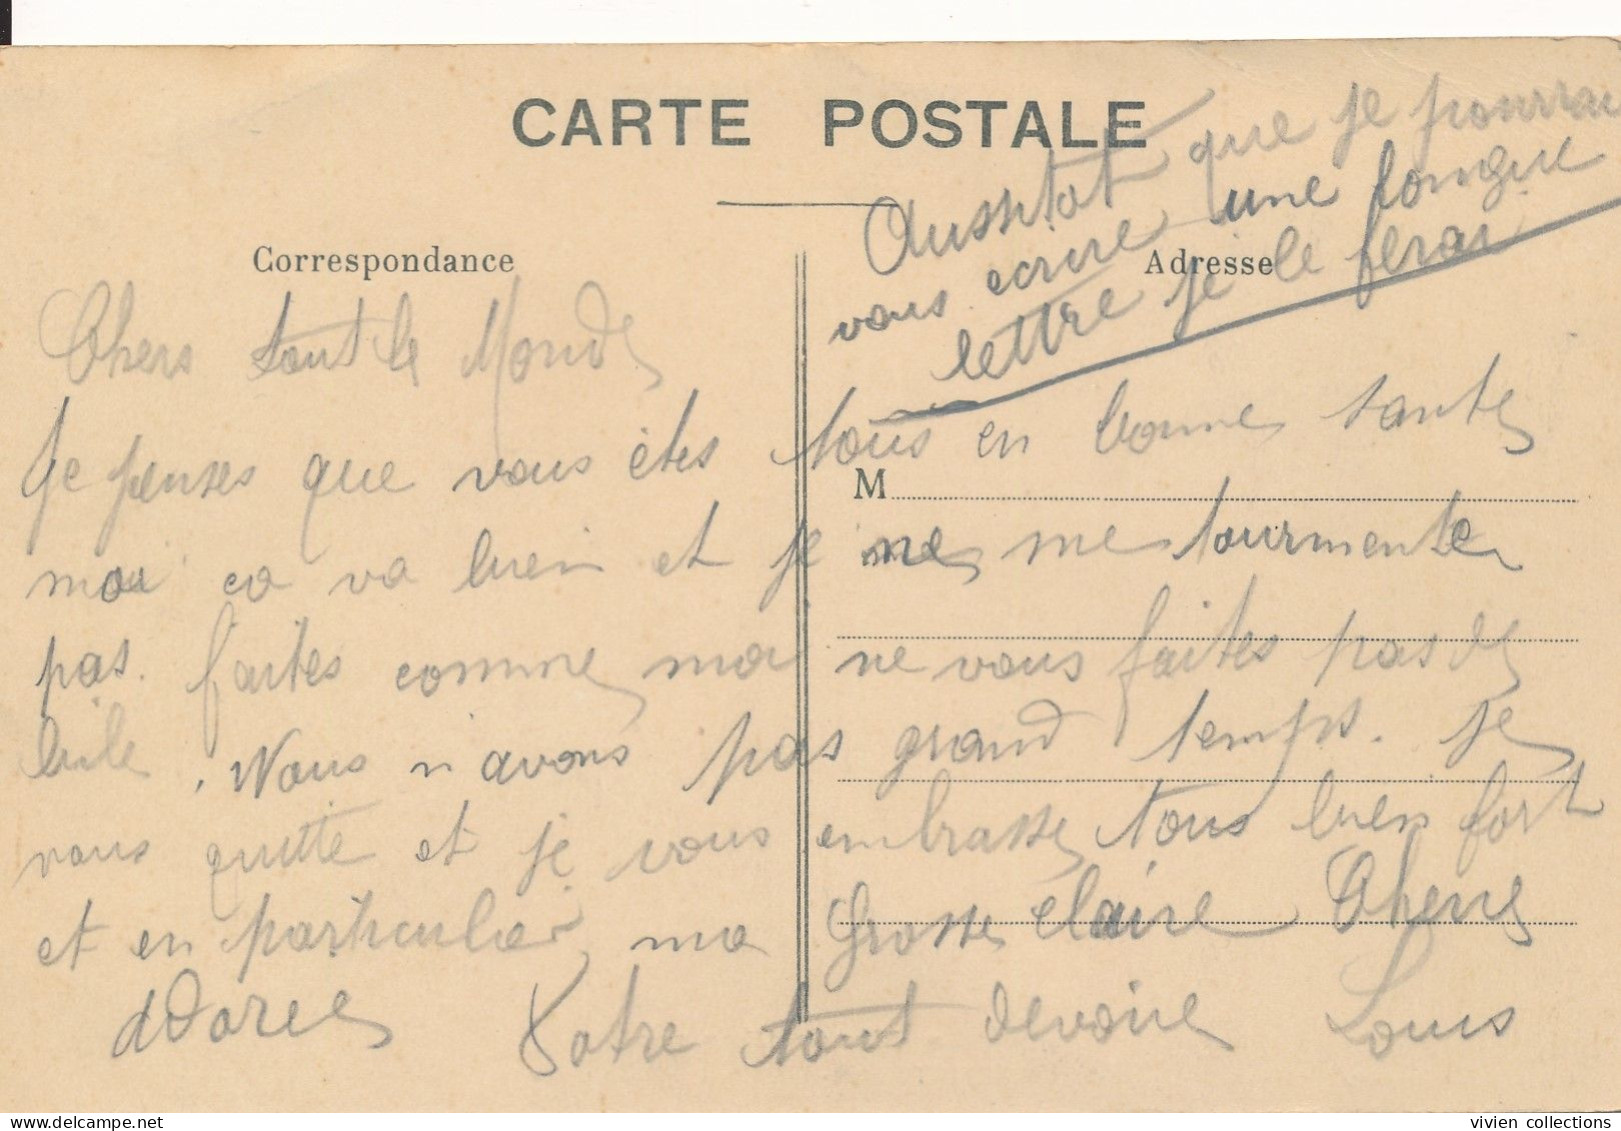 CARTE POSTALE
Aussitot que je pourrai
vous ecrire une longue
lettre je le ferai
Correspondance
Adresse
Chers tout le Monde
Je penses que vous êtes tous en bonne sante
M
moi ca va bien et je ne me tourmente
pas. faites comme moi ne vous faites pas de
bile. Nous n'avons pas grand temps. je
vous quitte et je vous embrasse tous bien fort
et en particulier ma Grosse Claire Cherie
adoree Votre tout devoué Louis
vivien collections